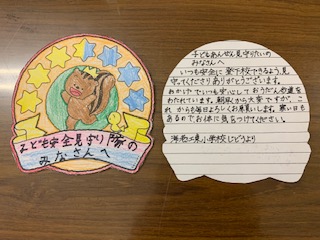 こども安全見守り隊の
みなさんへ
子どもあんぜん見守りたいの
みなさんへ
いつも安全に登下校できるよう、見
守ってくださりありがとうございます。
おかげでいつも安心しておうだん歩道を
わたれています。朝早くから大変ですが、こ
れからも毎日よろしくお願いします。寒い日も
あるのでお体に気をつけてください。
小学校じどうより